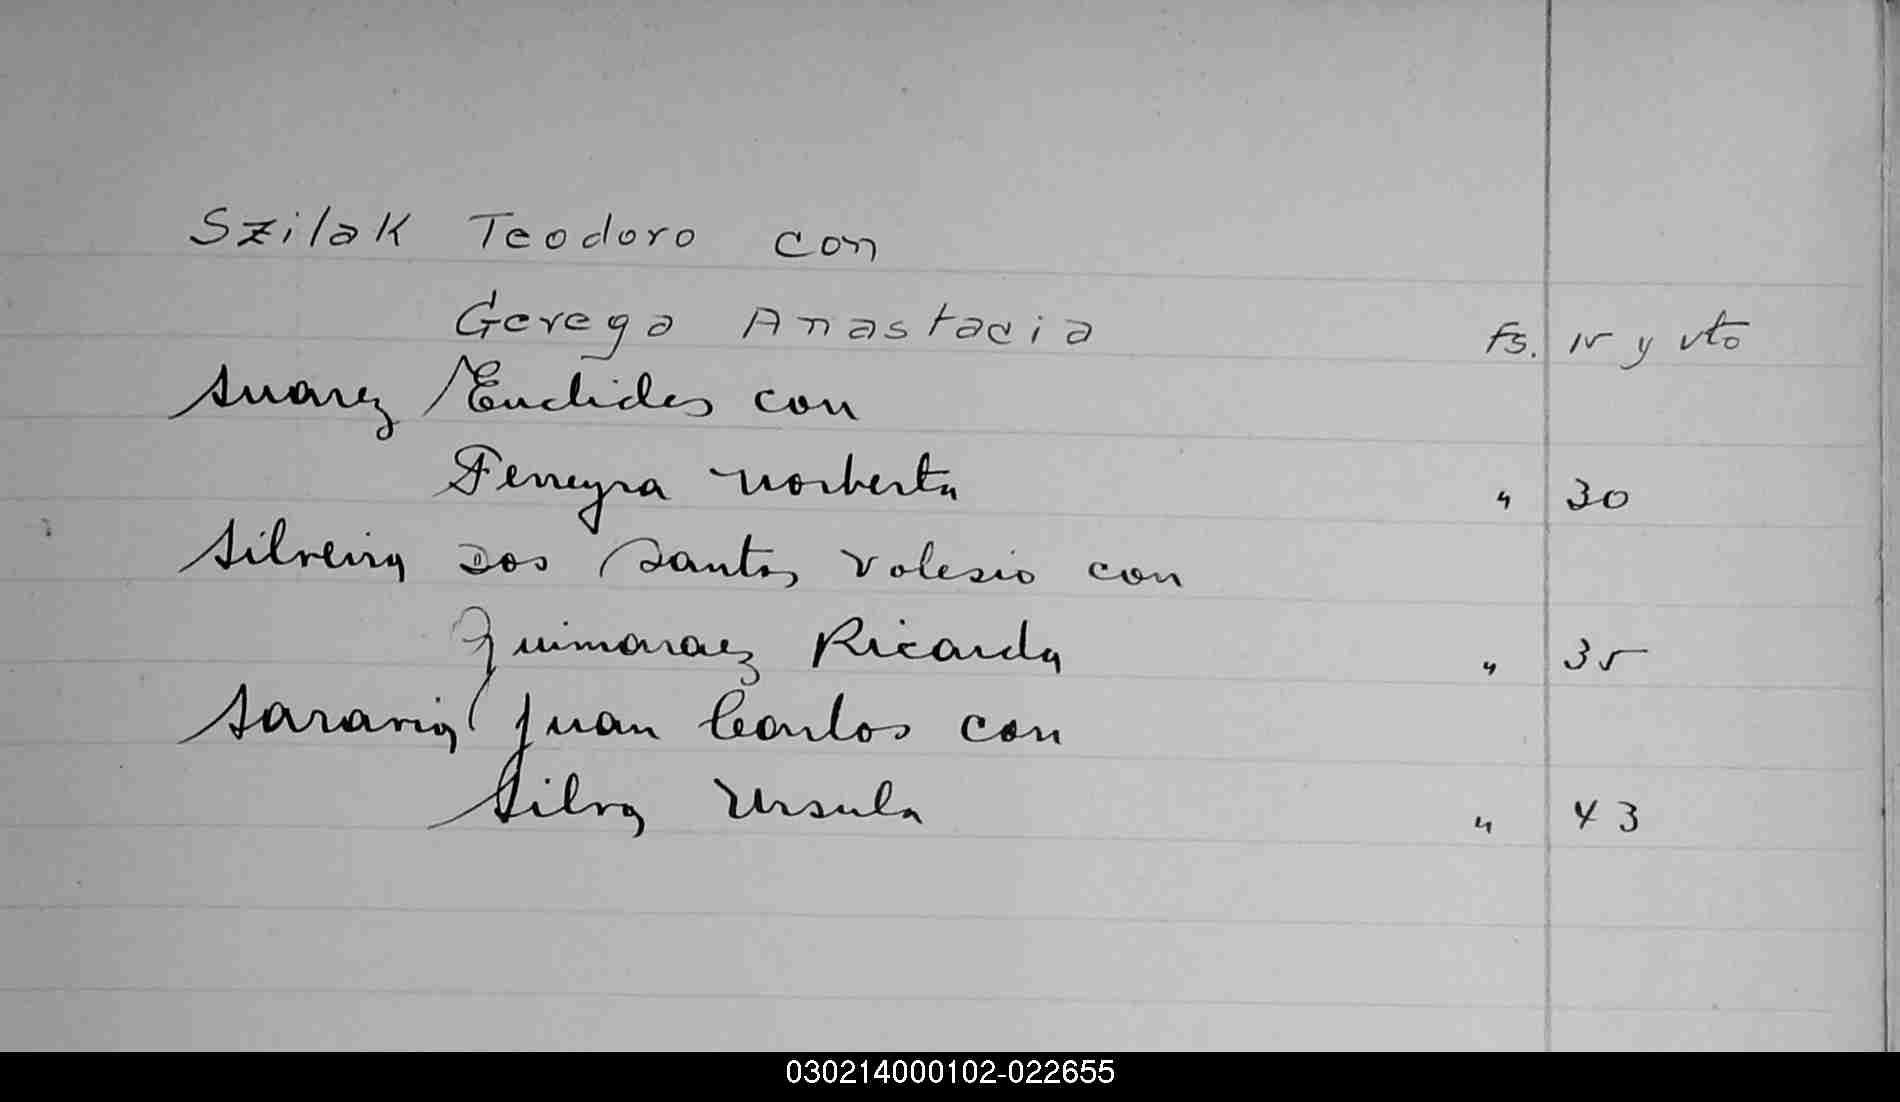 Szilak Teodoro con
Gerega Anastacia fs. 15 y vto
Suarez Euclides con
Ferreyra Norberta " 30
Silveira Dos Santos Volesio con
Guimaraez Ricarda " 35
Saravia Juan Carlos con
Silva Ursula " 43
030214000102-022655